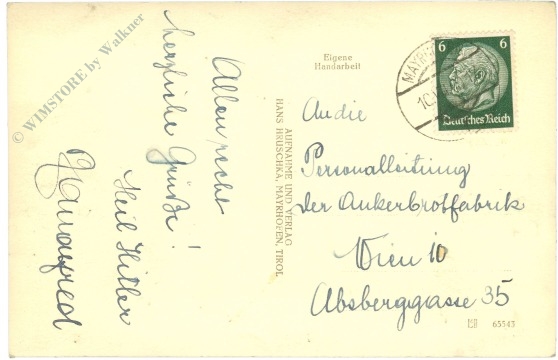 © WIMSTORE by Walkner
Allen recht
herzliche Grüße!
Heil Hitler
Manfred
Eigene
Handarbeit
AUFNAHME UND VERLAG
HANS HRUSCHKA, MAYRHOFEN, TIROL
6 6
Deutsches Reich
MAYRH
10.
An die
Personalleitung
der Ankerbrotfabrik
Wien 10
Absberggasse 35
65543